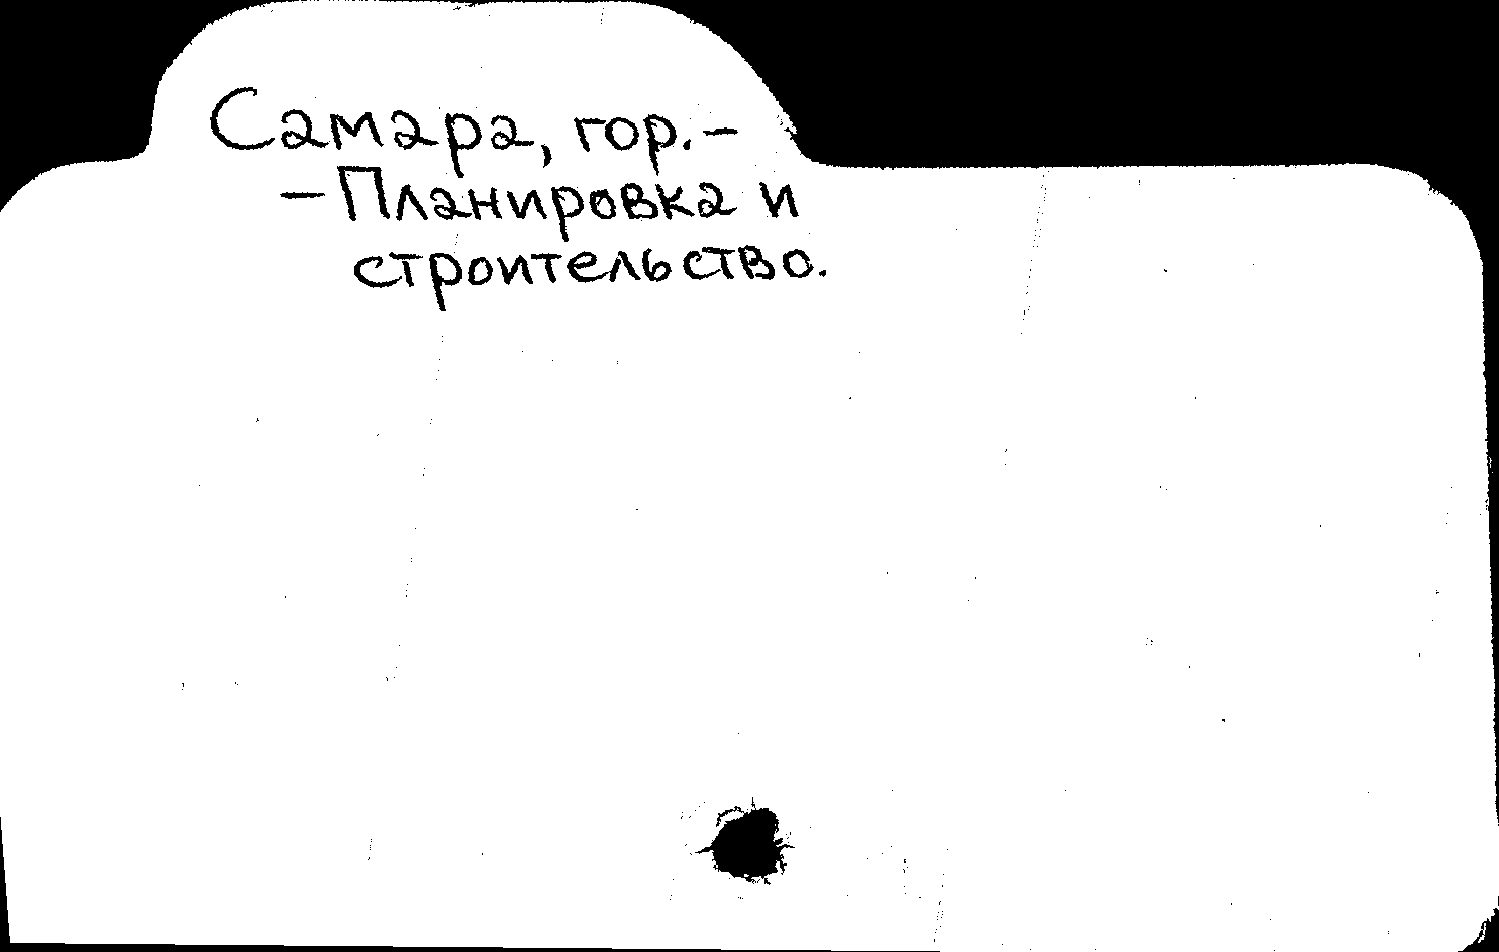 Самара, гор. –
– Планировка и
строительство.